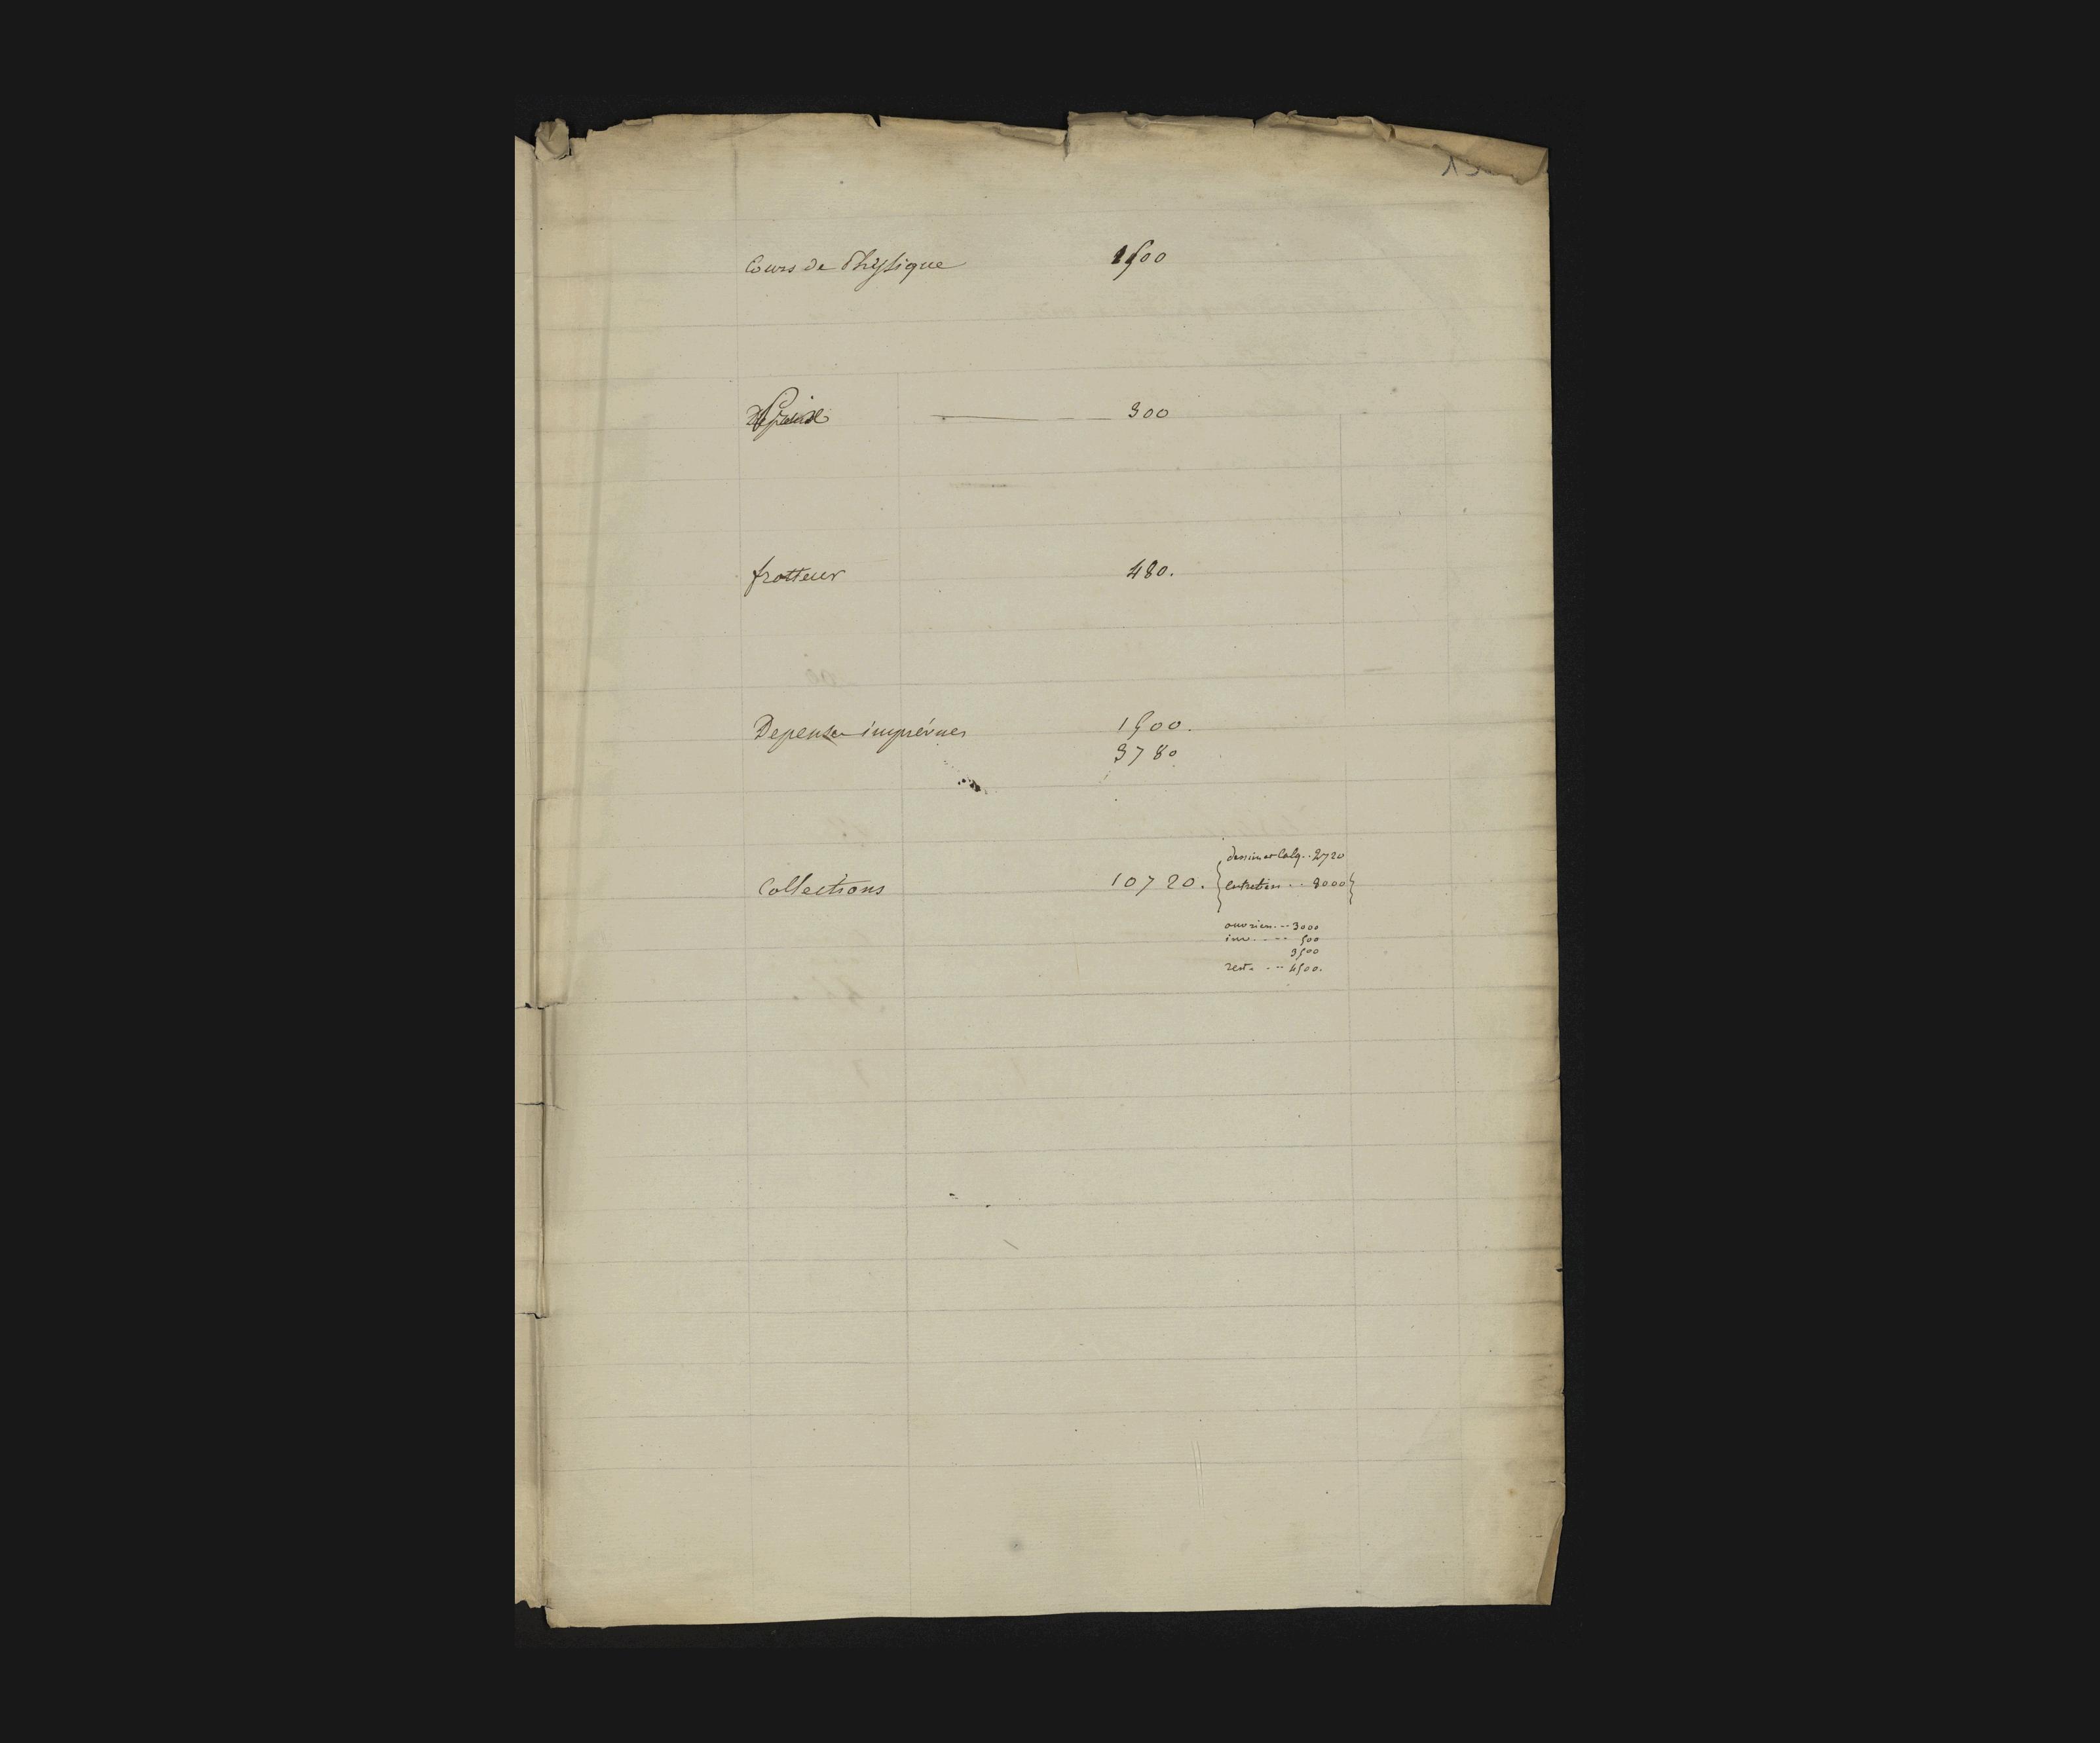 Cours de Physique 1500
Prix 300
frotteur 480.
Depenses imprévues 1500.
3780
dessin et Calq.. 2720
Collections 10720.
Entretien .. 8000
ouvriers --- 3000
500
3500
reste --- 4500.